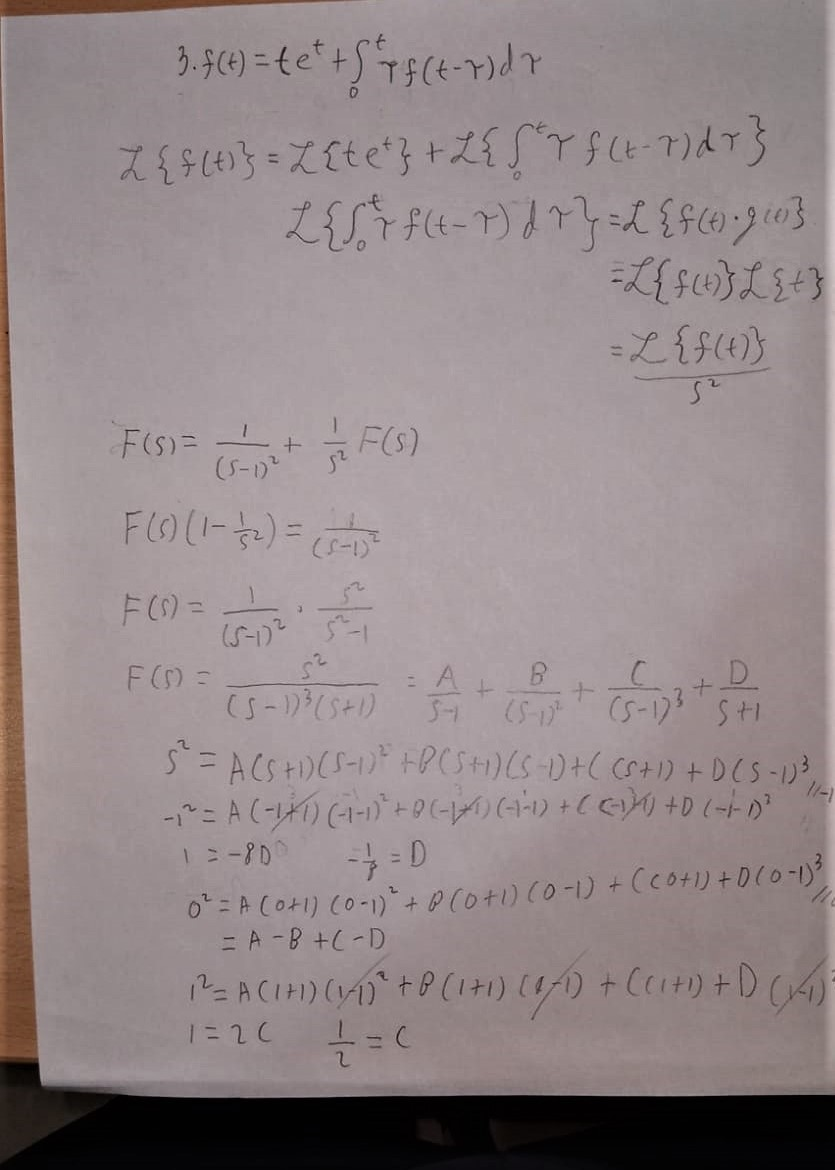 3. f(t) = te^t + ∫₀^t τ f(t-τ) dτ
ℒ{f(t)} = ℒ{te^t} + ℒ{∫₀^t τ f(t-τ) dτ}
ℒ{∫₀^t τ f(t-τ) dτ} = ℒ{f(t)·g(t)}
= ℒ{f(t)} ℒ{t}
= ℒ{f(t)} / s²
F(s) = 1/(s-1)² + 1/s² F(s)
F(s)(1 - 1/s²) = 1/(s-1)²
F(s) = 1/(s-1)² · s²/(s²-1)
F(s) = s²/((s-1)³(s+1)) = A/(s-1) + B/(s-1)² + C/(s-1)³ + D/(s+1)
s² = A(s+1)(s-1)² + B(s+1)(s-1) + C(s+1) + D(s-1)³ //-1
-1² = A(-1+1)(-1-1)² + B(-1+1)(-1-1) + C(-1+1) + D(-1-1)³
1 = -8D -1/8 = D
0² = A(0+1)(0-1)² + B(0+1)(0-1) + C(0+1) + D(0-1)³ //0
= A - B + C - D
1² = A(1+1)(1-1)² + B(1+1)(1-1) + C(1+1) + D(1-1)³
1 = 2C 1/2 = C